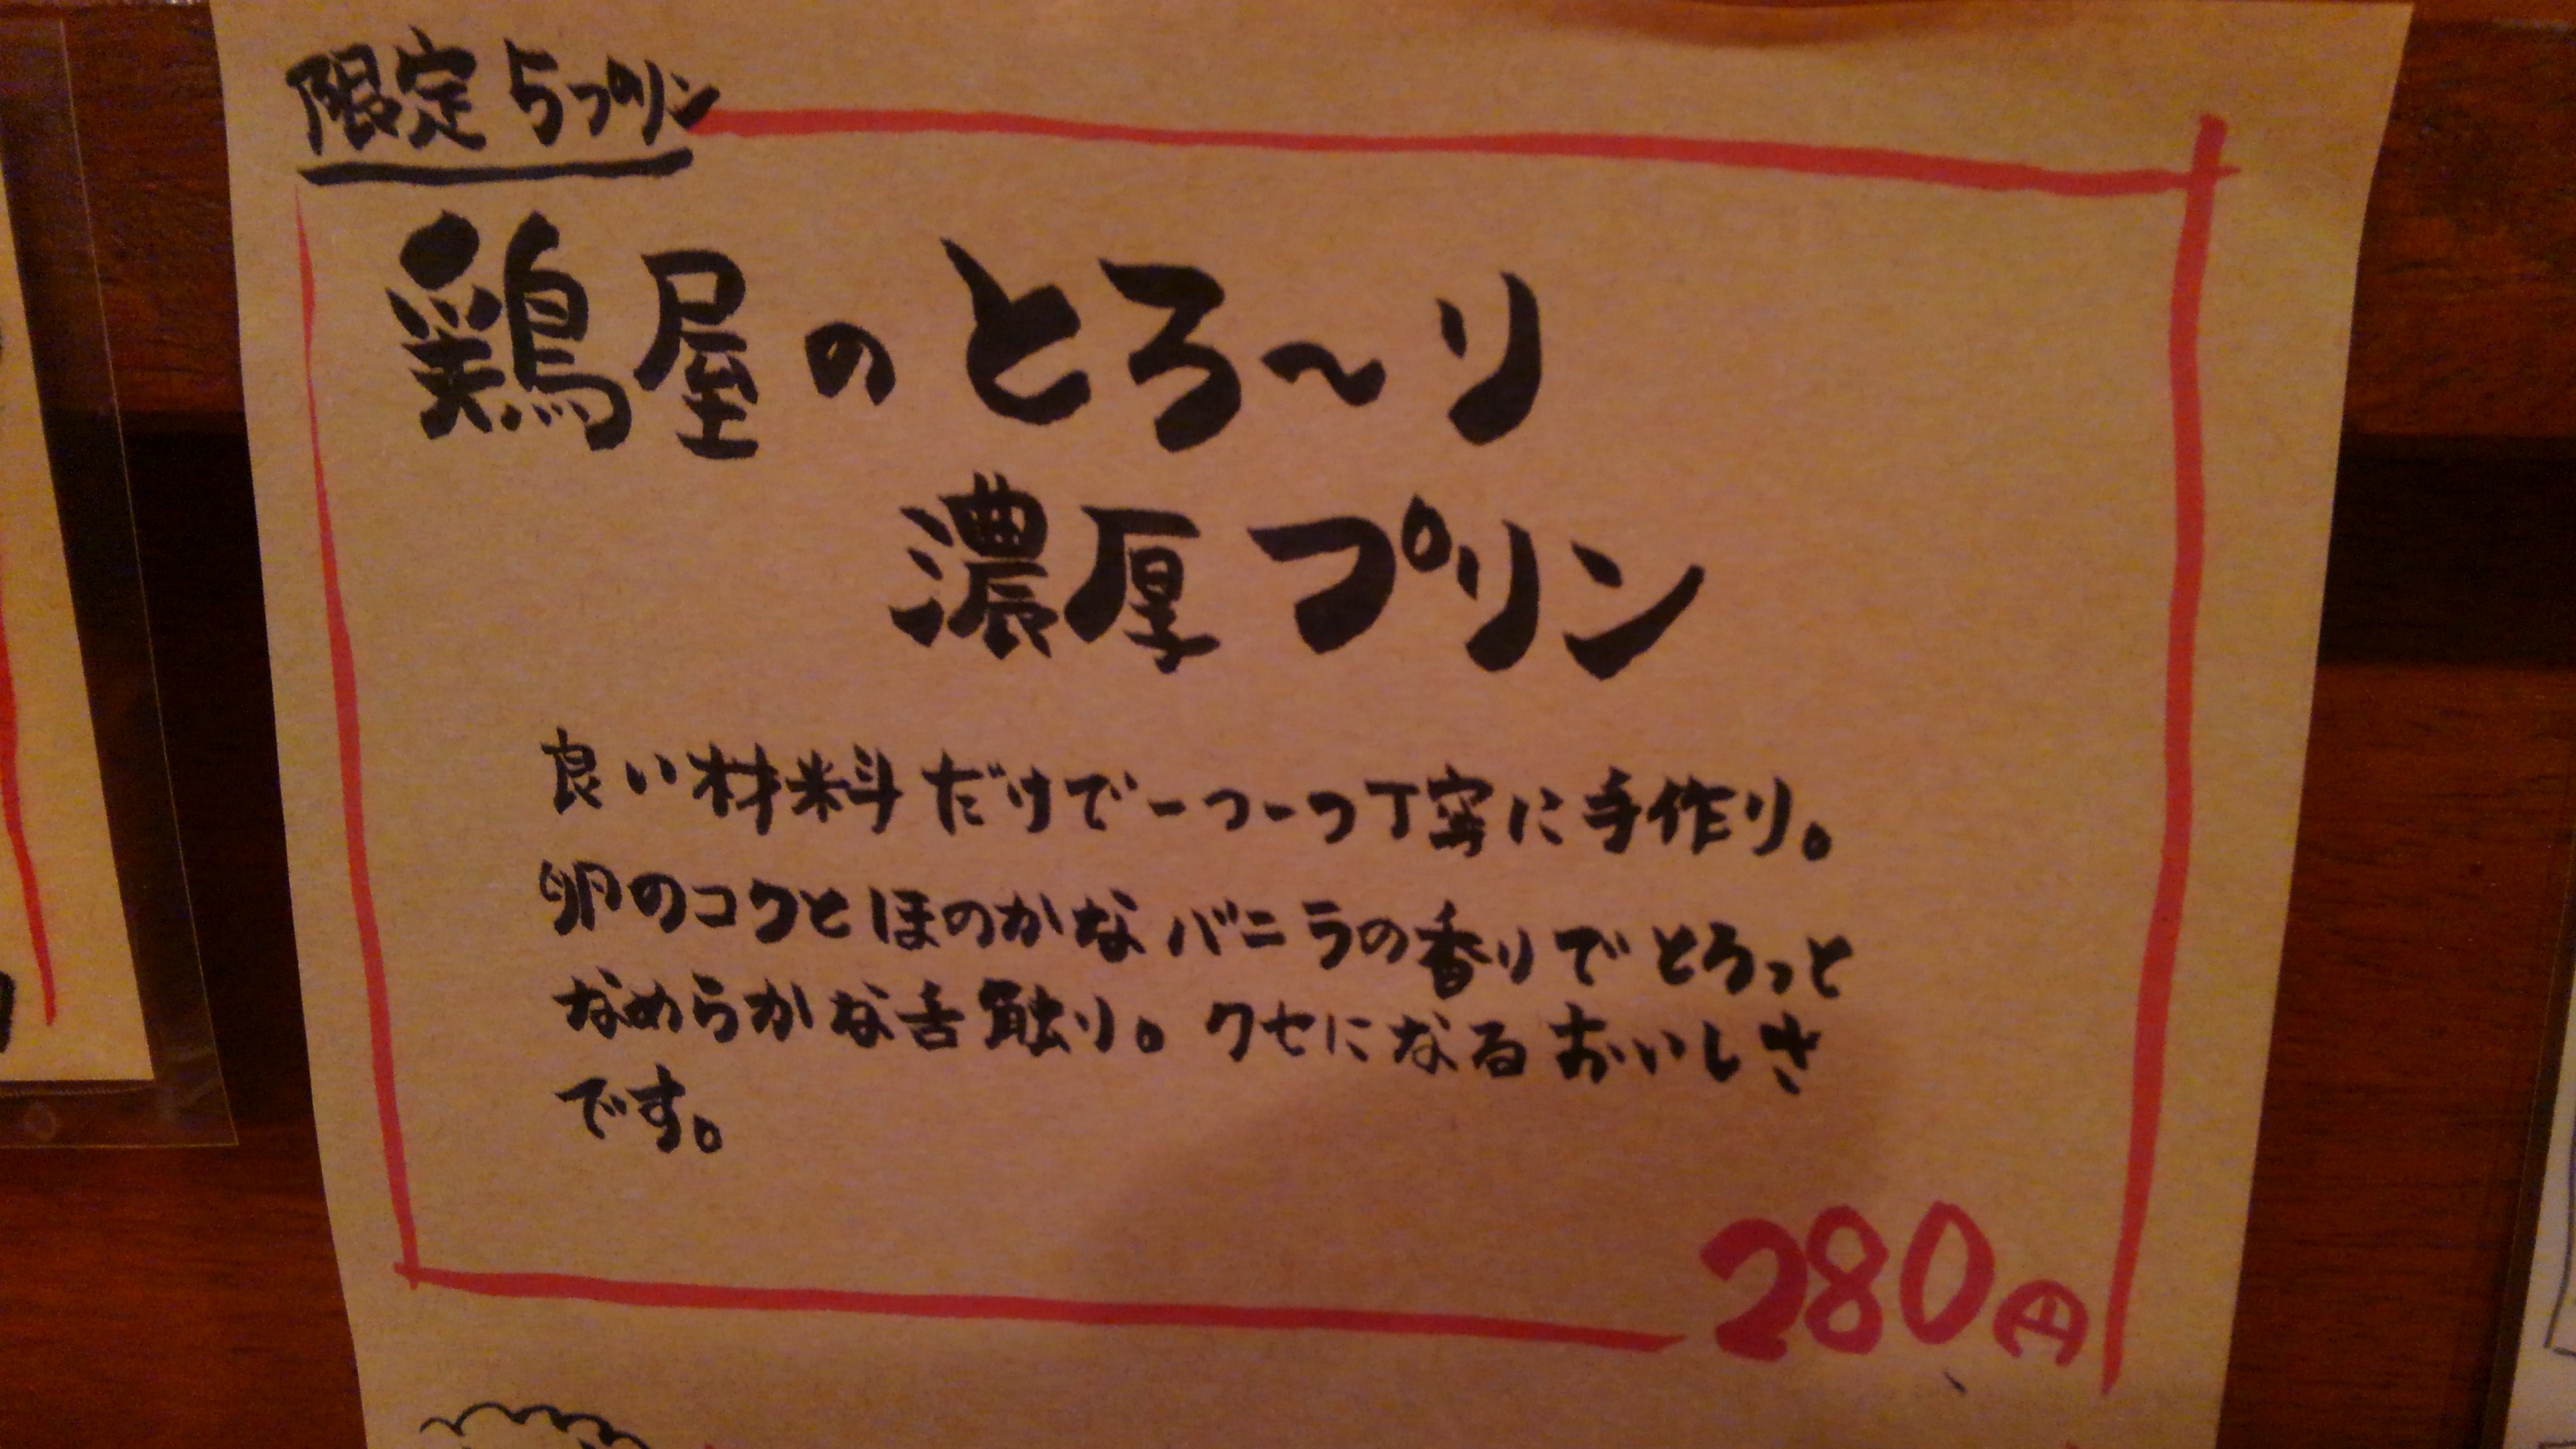 限定 5つプリン
鶏屋のとろ〜り
濃厚プリン
良い材料だけで一つ一つ丁寧に手作り。
卵のコクとほのかなバニラの香りでとろっと
なめらかな舌触り。クセになるおいしさ
です。
280円